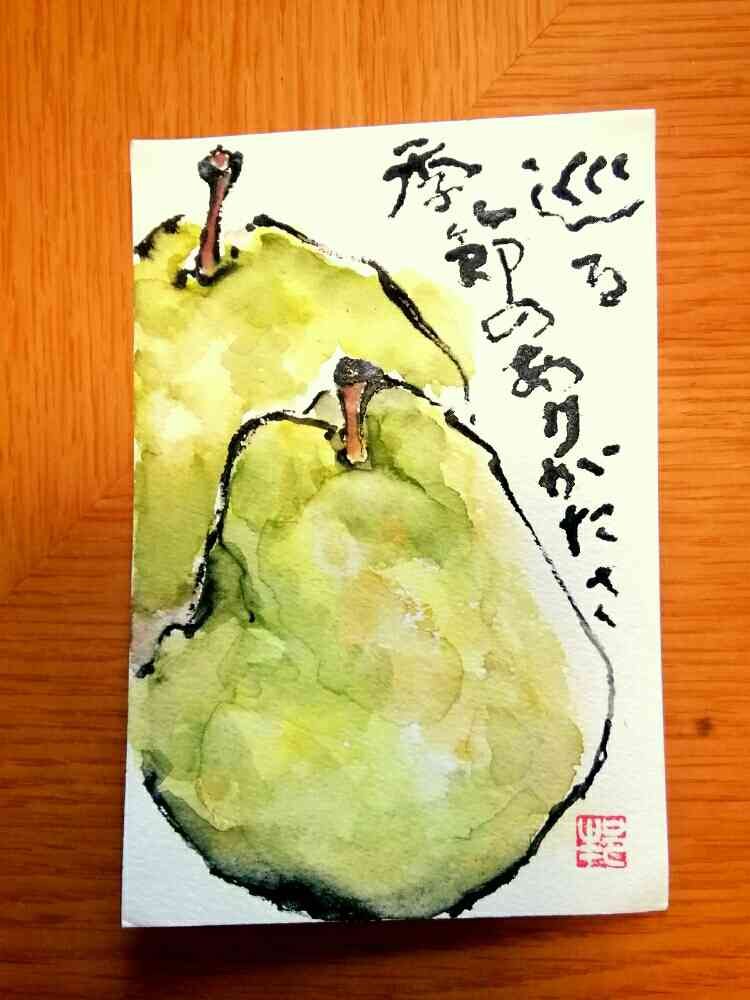 巡る
季節のありがたさ